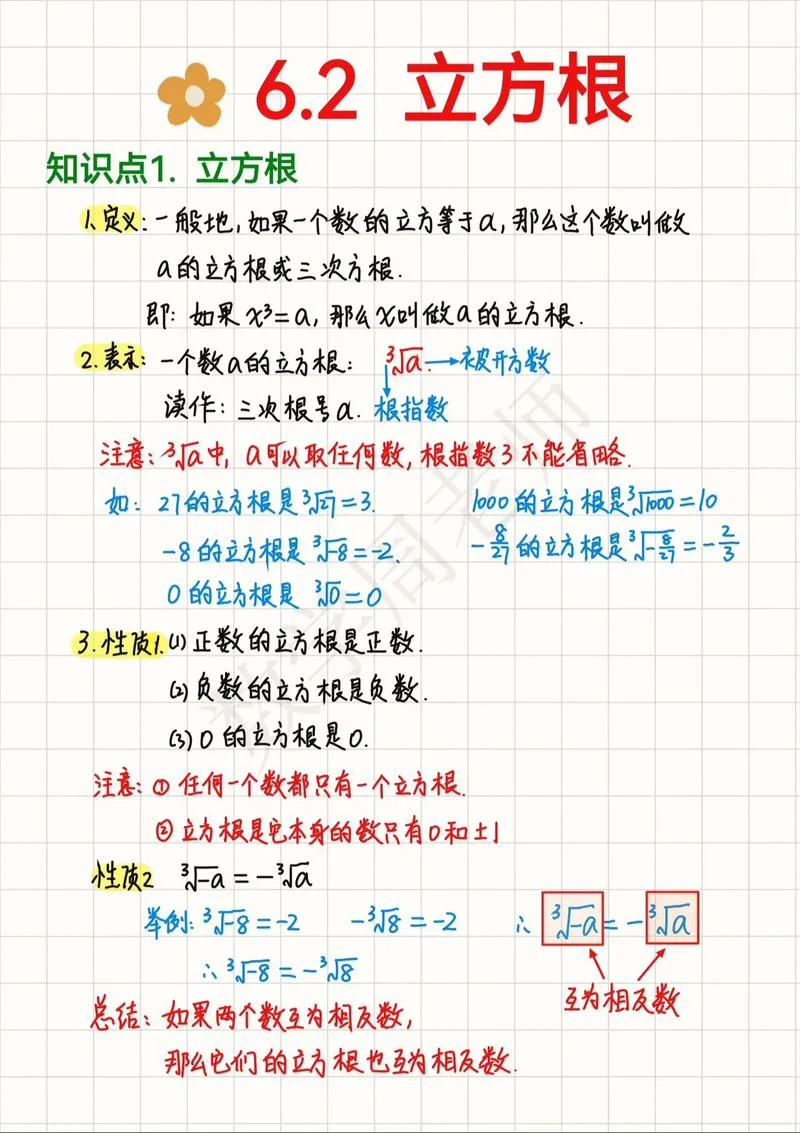 6.2 立方根
知识点1. 立方根
1.定义: 一般地, 如果一个数的立方等于a, 那么这个数叫做
a的立方根或三次方根.
即: 如果 x³=a, 那么x叫做a的立方根.
2.表示: 一个数a的立方根: ³√a. → 被开方数
读作: 三次根号a. 根指数
注意: ³√a中, a可以取任何数, 根指数3不能省略.
如: 27的立方根是³√27=3. 1000的立方根是³√1000=10
-8的立方根是 ³√-8=-2. -8/27的立方根是³√-8/27=-2/3
0的立方根是 ³√0=0
3.性质1. (1)正数的立方根是正数.
(2)负数的立方根是负数.
(3)0的立方根是0.
注意: ①任何一个数都只有一个立方根.
②立方根是它本身的数只有0和±1
性质2 ³√-a=-³√a
举例: ³√-8=-2 -³√8=-2 ∴ ³√-a=-³√a
∴ ³√-8=-³√8
互为相反数
总结: 如果两个数互为相反数,
那么它们的立方根也互为相反数.
数学周老师